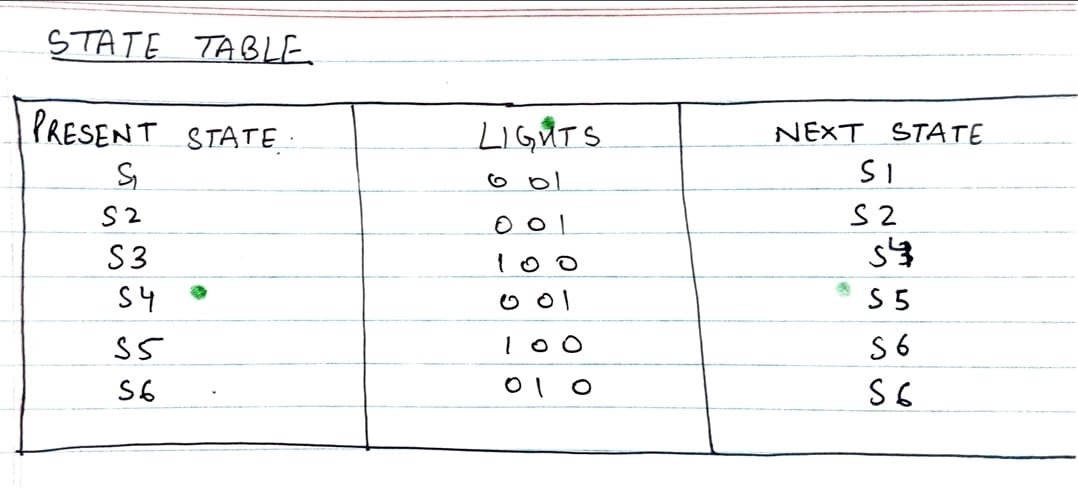 STATE TABLE
PRESENT STATE. LIGHTS NEXT STATE
S1 001 S1
S2 001 S2
S3 100 S4
S4 001 S5
S5 100 S6
S6 010 S6